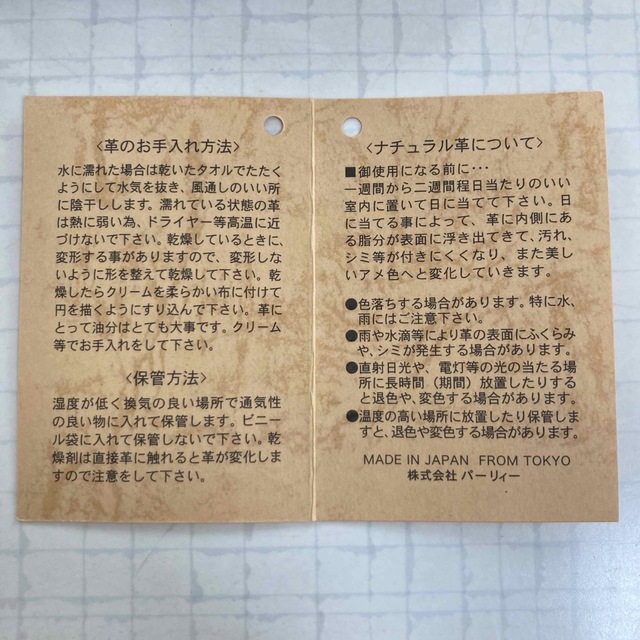 〈革のお手入れ方法〉
水に濡れた場合は乾いたタオルでたたく
ようにして水気を抜き、風通しのいい所
に陰干しします。濡れている状態の革
は熱に弱い為、ドライヤー等高温に近
づけないで下さい。乾燥しているときに、
変形する事がありますので、変形しな
いように形を整えて乾燥して下さい。乾
燥したらクリームを柔らかい布に付けて
円を描くようにすり込んで下さい。革に
とって油分はとても大事です。クリーム
等でお手入れをして下さい。
〈保管方法〉
湿度が低く換気の良い場所で通気性
の良い物に入れて保管します。ビニー
ル袋に入れて保管しないで下さい。乾
燥剤は直接革に触れると革が変化しま
すので注意をして下さい。
〈ナチュラル革について〉
■御使用になる前に・・・
一週間から二週間程日当たりのいい
室内に置いて日に当てて下さい。日
に当てる事によって、革に内側にあ
る脂分が表面に浮き出てきて、汚れ、
シミ等が付きにくくなり、また美し
いアメ色へと変化していきます。
●色落ちする場合があります。特に水、
雨にはご注意下さい。
●雨や水滴等により革の表面にふくらみ
や、シミが発生する場合があります。
●直射日光や、電灯等の光の当たる場
所に長時間（期間）放置したりする
と退色や、変色する場合があります。
●温度の高い場所に放置したり保管しま
すと、退色や変色する場合があります。
MADE IN JAPAN FROM TOKYO
株式会社 パーリィー